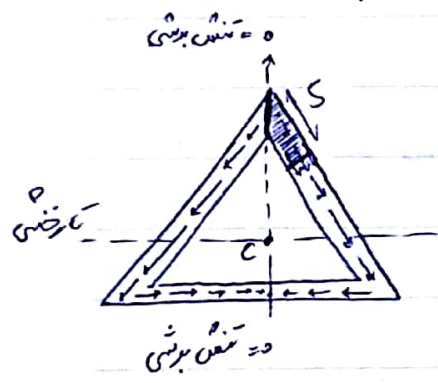 تنش برشی = 0
S
تار خنثی
C
تنش برشی = 0